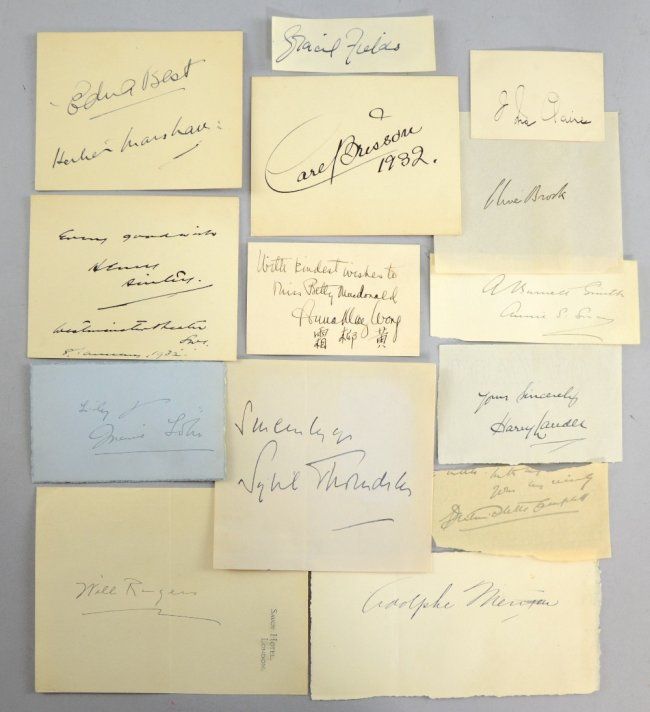 Edna Best
Herbert Marshall
Gracie Fields
Carl Brisson
1932.
Ina Claire
Clive Brook
Every good wish
Henry
Ainley.
Westminster Theatre
1932
With kindest wishes to
Miss Betty Macdonald
Anna May Wong
霜 柳 黄
A Burnett Smith
Annie S. Swan
Marie Löhr
Sincerely
Sybil Thorndike
Yours Sincerely
Harry Lauder
Will Rogers
Savoy Hotel,
London.
Adolphe Menjou